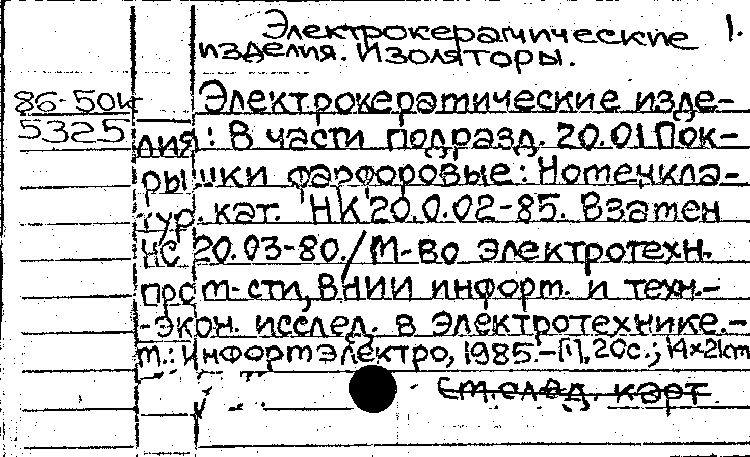 Электрокерамические 1.
изделия. Изоляторы.
86-50к Электрокерамические изде-
5325 лия: В части подразд. 20.01 Пок-
рышки фарфоровые: Номенкла-
тур. кат. НК 20.0.02-85. Взамен
НС 20.03-80./М-во электротехн.
пром-сти, ВНИИ информ. и техн.-
-экон. исслед. в электротехнике.-
М.: Информэлектро, 1985.-[1], 20с.; 14×21cm
См.след. карт